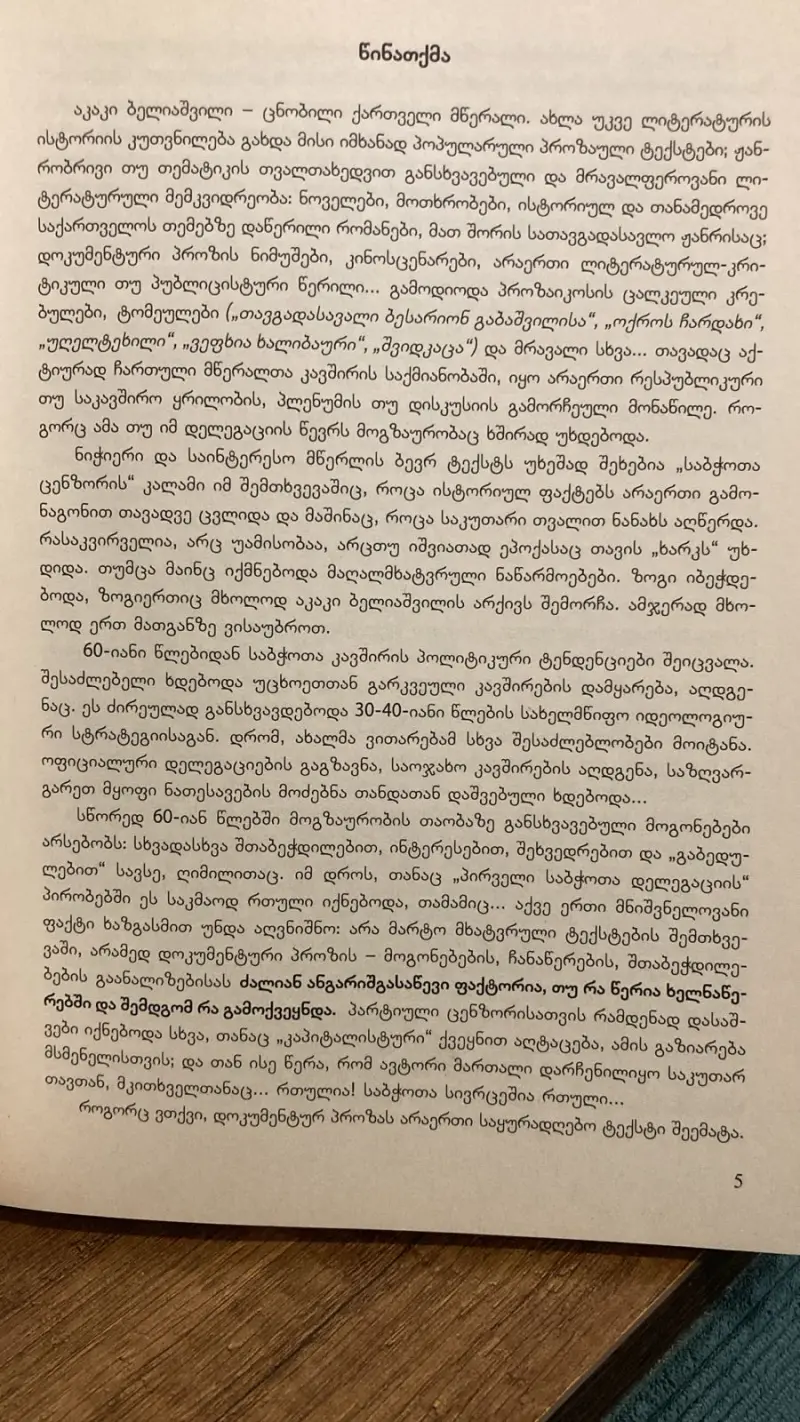 წინათქმა
აკაკი ბელიაშვილი – ცნობილი ქართველი მწერალი. ახლა უკვე ლიტერატურის
ისტორიის კუთვნილება გახდა მისი იმხანად პოპულარული პროზაული ტექსტები; ჟან-
რობრივი თუ თემატიკის თვალთახედვით განსხვავებული და მრავალფეროვანი ლი-
ტერატურული მემკვიდრეობა: ნოველები, მოთხრობები, ისტორიულ და თანამედროვე
საქართველოს თემებზე დაწერილი რომანები, მათ შორის სათავგადასავლო ჟანრისაც;
დოკუმენტური პროზის ნიმუშები, კინოსცენარები, არაერთი ლიტერატურულ-კრი-
ტიკული თუ პუბლიცისტური წერილი... გამოდიოდა პროზაიკოსის ცალკეული კრე-
ბულები, ტომეულები („თავგადასავალი ბესარიონ გაბაშვილისა“, „ოქროს ჩარდახი“,
„უღელტეხილი“, „ვეფხია ხალიბაური“, „შვიდკაცა“) და მრავალი სხვა... თავადაც აქ-
ტიურად ჩართული მწერალთა კავშირის საქმიანობაში, იყო არაერთი რესპუბლიკური
თუ საკავშირო ყრილობის, პლენუმის თუ დისკუსიის გამორჩეული მონაწილე. რო-
გორც ამა თუ იმ დელეგაციის წევრს მოგზაურობაც ხშირად უხდებოდა.
ნიჭიერი და საინტერესო მწერლის ბევრ ტექსტს უხეშად შეხებია „საბჭოთა
ცენზორის“ კალამი იმ შემთხვევაშიც, როცა ისტორიულ ფაქტებს არაერთი გამო-
ნაგონით თავადვე ცვლიდა და მაშინაც, როცა საკუთარი თვალით ნანახს აღწერდა.
რასაკვირველია, არც უამისობაა, არცთუ იშვიათად ეპოქასაც თავის „ხარკს“ უხ-
დიდა. თუმცა მაინც იქმნებოდა მაღალმხატვრული ნაწარმოებები. ზოგი იბეჭდე-
ბოდა, ზოგიერთიც მხოლოდ აკაკი ბელიაშვილის არქივს შემორჩა. ამჯერად მხო-
ლოდ ერთ მათგანზე ვისაუბროთ.
60-იანი წლებიდან საბჭოთა კავშირის პოლიტიკური ტენდენციები შეიცვალა.
შესაძლებელი ხდებოდა უცხოეთთან გარკვეული კავშირების დამყარება, აღდგე-
ნაც. ეს ძირეულად განსხვავდებოდა 30-40-იანი წლების სახელმწიფო იდეოლოგიუ-
რი სტრატეგიისაგან. დრომ, ახალმა ვითარებამ სხვა შესაძლებლობები მოიტანა.
ოფიციალური დელეგაციების გაგზავნა, საოჯახო კავშირების აღდგენა, საზღვარ-
გარეთ მყოფი ნათესავების მოძებნა თანდათან დაშვებული ხდებოდა...
სწორედ 60-იან წლებში მოგზაურობის თაობაზე განსხვავებული მოგონებები
არსებობს: სხვადასხვა შთაბეჭდილებით, ინტერესებით, შეხვედრებით და „გაბედუ-
ლებით“ სავსე, ღიმილითაც. იმ დროს, თანაც „პირველი საბჭოთა დელეგაციის“
პირობებში ეს საკმაოდ რთული იქნებოდა, თამამიც... აქვე ერთი მნიშვნელოვანი
ფაქტი ხაზგასმით უნდა აღვნიშნო: არა მარტო მხატვრული ტექსტების შემთხვე-
ვაში, არამედ დოკუმენტური პროზის – მოგონებების, ჩანაწერების, შთაბეჭდილე-
ბების გაანალიზებისას ძალიან ანგარიშგასაწევი ფაქტორია, თუ რა წერია ხელნაწე-
რებში და შემდგომ რა გამოქვეყნდა. პარტიული ცენზორისათვის რამდენად დასაშ-
ვები იქნებოდა სხვა, თანაც „კაპიტალისტური“ ქვეყნით აღტაცება, ამის გაზიარება
მსმენელისთვის; და თან ისე წერა, რომ ავტორი მართალი დარჩენილიყო საკუთარ
თავთან, მკითხველთანაც... რთულია! საბჭოთა სივრცეშია რთული...
როგორც ვთქვი, დოკუმენტურ პროზას არაერთი საყურადღებო ტექსტი შეემატა.
5